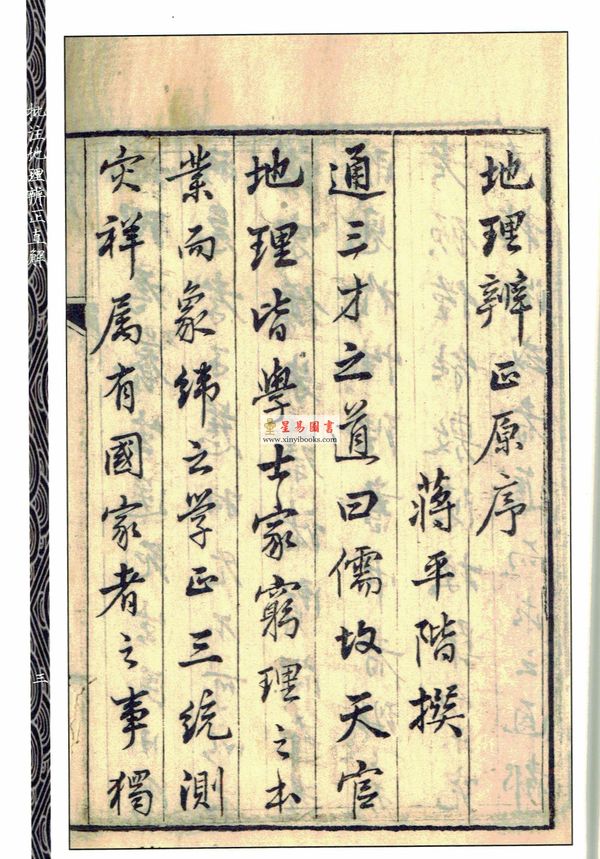 地理辨正原序
蔣平階撰
通三才之道曰儒故天官
地理皆學士家窮理之本
業而象緯之学正三统測
灾祥属有國家者之事獨
批注地理辨正直解
三
星易图書
www.xinyibooks.com